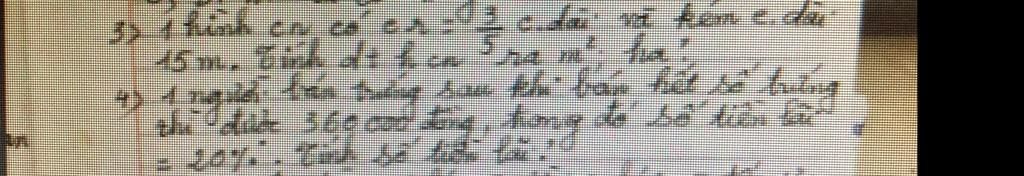 3) 1 hình cn có c r = 3/5 c.dài và kém c.dài
15 m. Tính dt h cn ra m², ha?
4) 1 người bán trứng sau khi bán hết số trứng
thì được 360 000 đồng, trong đó số tiền lãi
= 20%. Tính số tiền lãi?